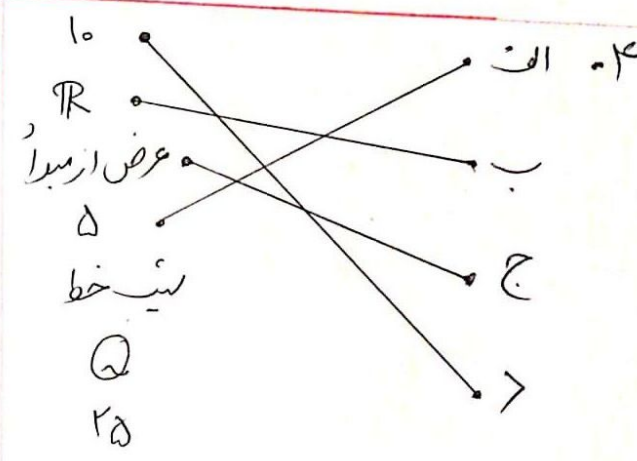 ۴. الف
ب
ج
د
۱۰
ℝ
عرض از مبدأ
۵
شیب خط
Q
۲۵